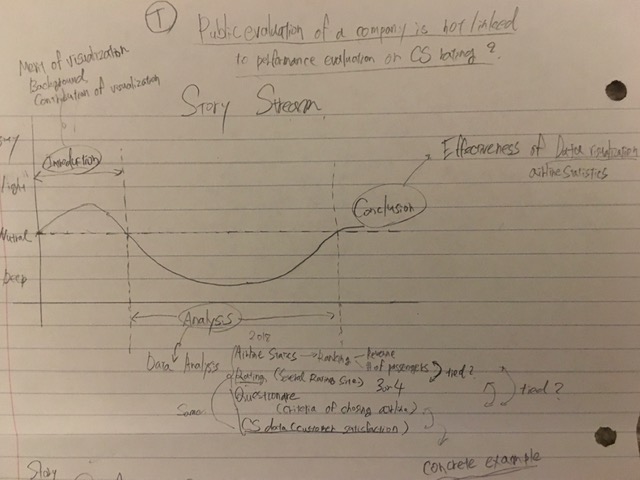 ① Public evaluation of a company is not linked
to performance evaluation or CS rating?
Mean of visualization
Background
Contribution of visualization
Story Stream
Light
Introduction
Effectiveness of Data visualization
airline statistics
Conclusion
Nutral
Deep
Analysis
2018
Data Analysis
Airline Stats → Ranking - Revenue
# of passengers
tied?
Rating (Social Rating Site) 3 or 4
tied?
Questionare
(Criteria of chosing airline)
Same
CS data (customer satisfaction)
Concrete example
Story